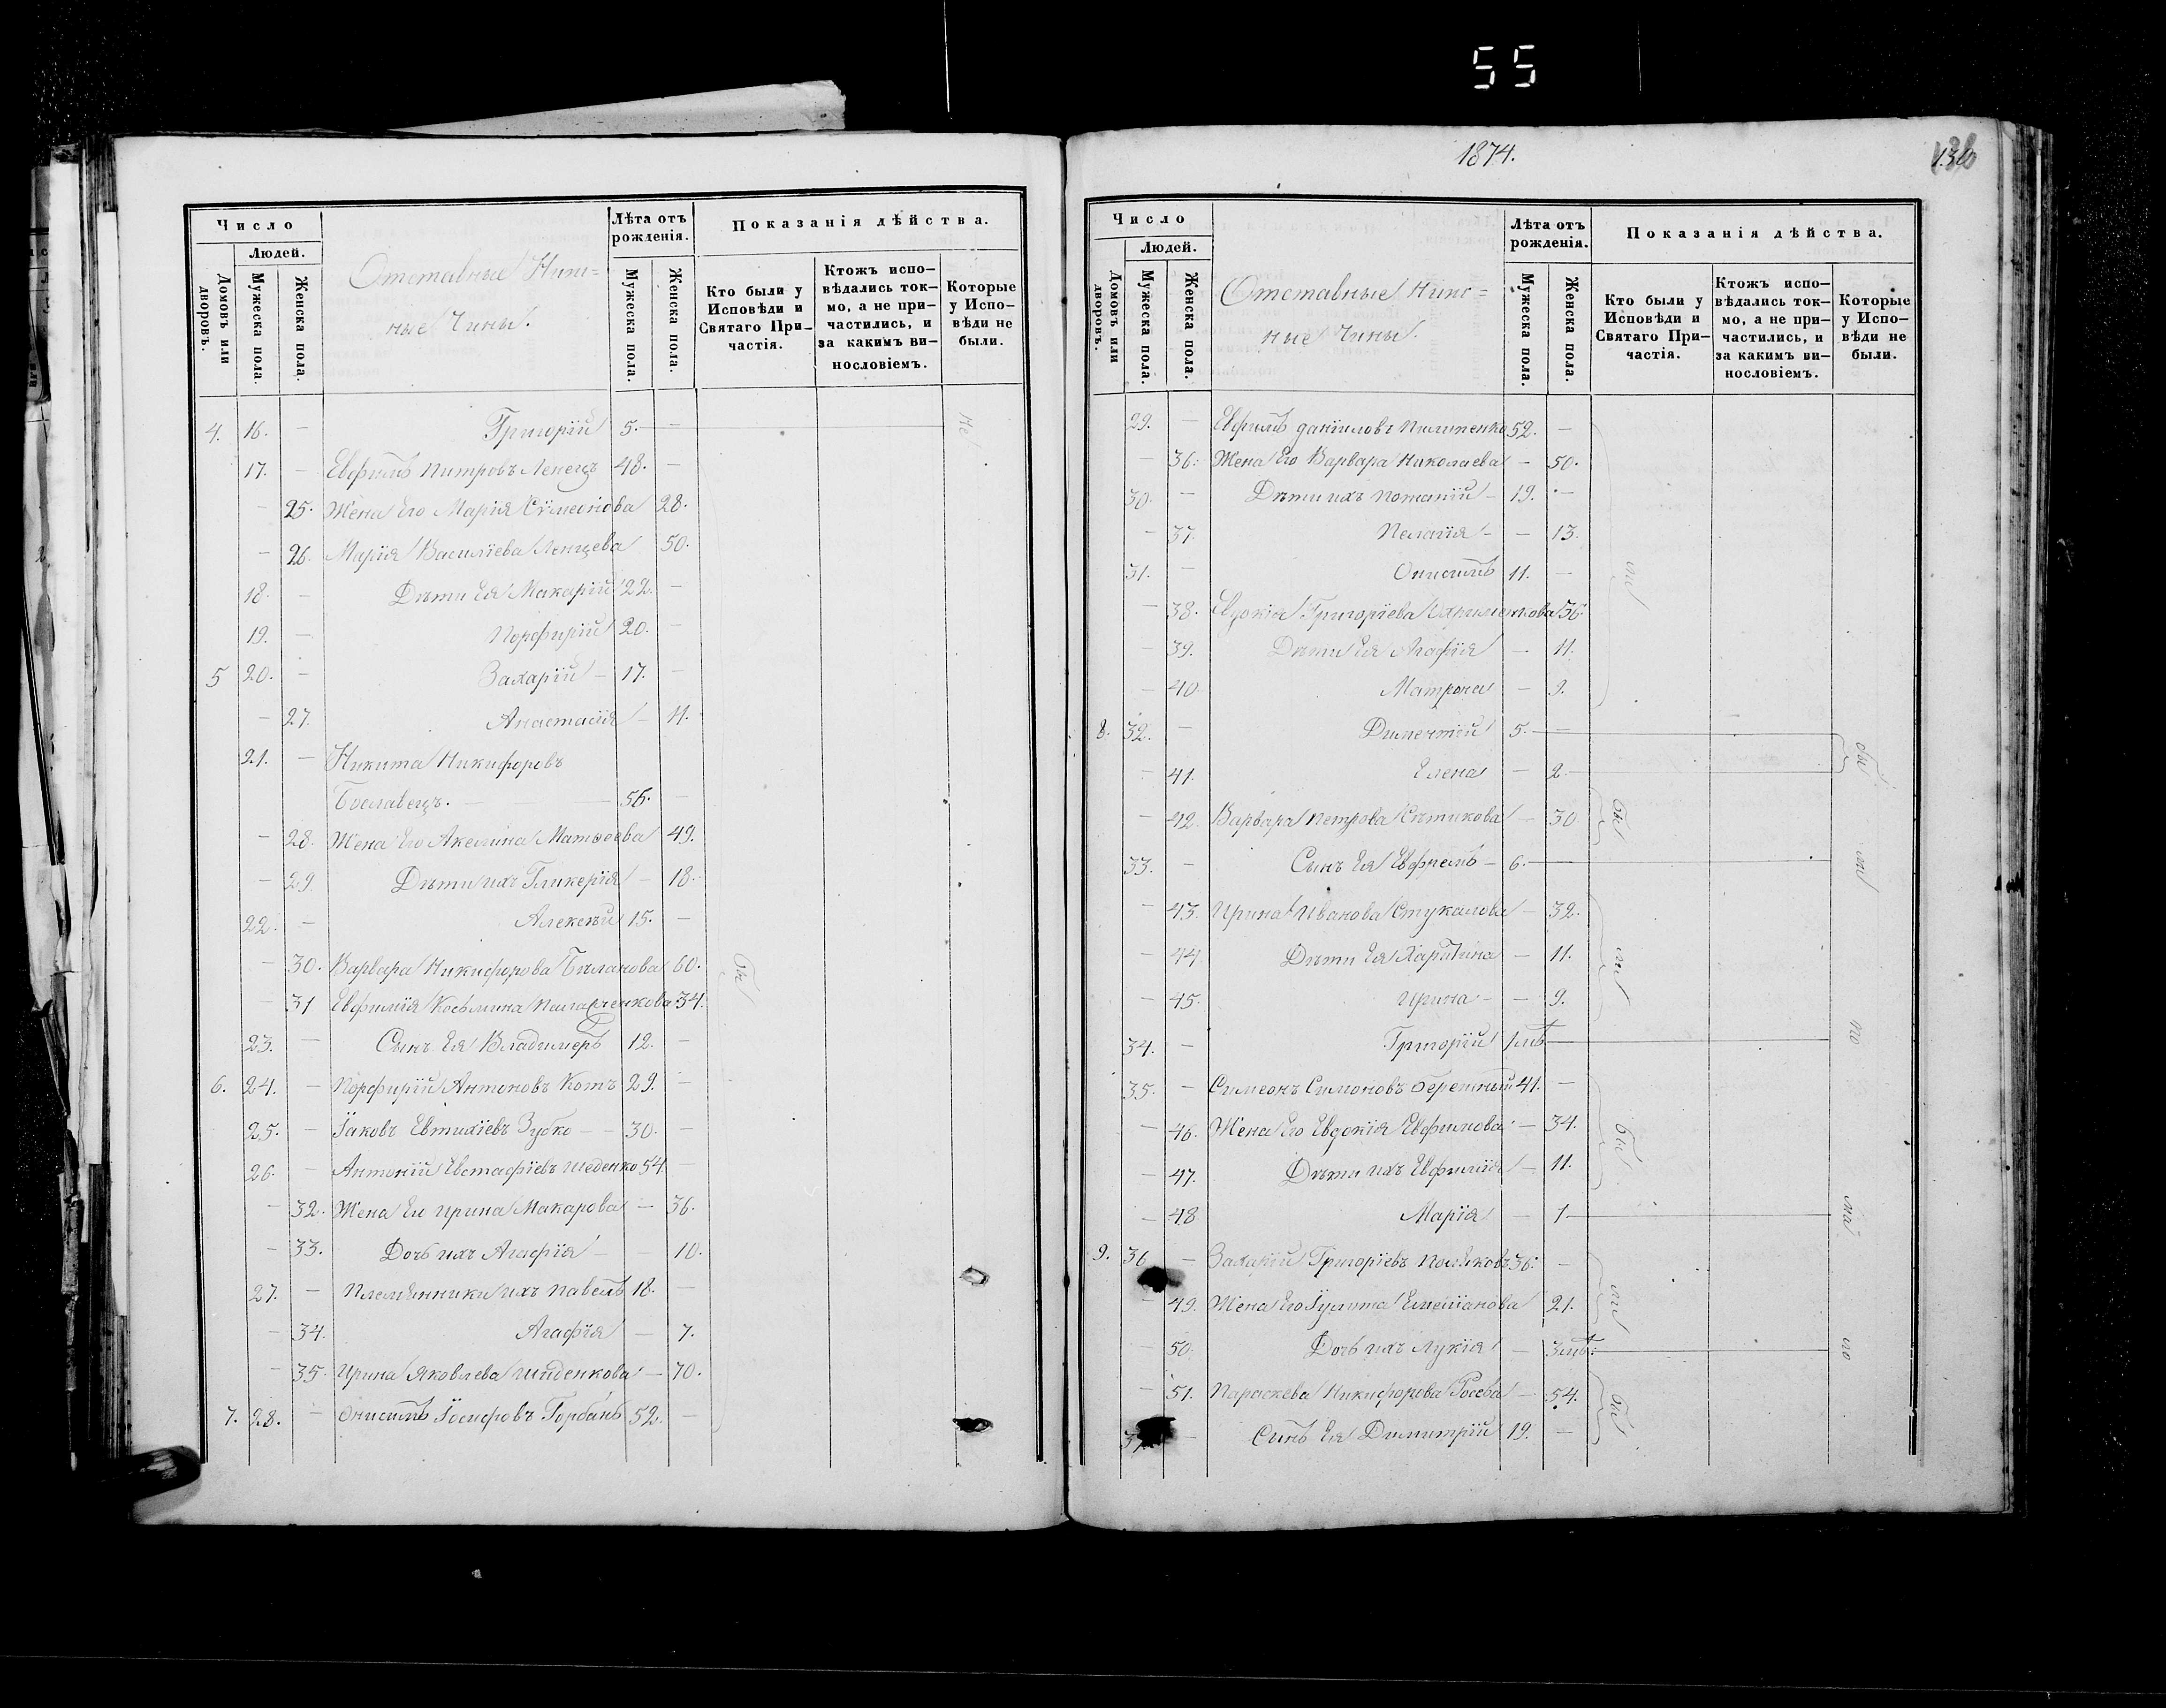 55
Число
Людей.
Домовъ или дворовъ.
Мужеска пола.
Женска пола.
Отставные Ниж=
ные Чины.
Лѣта отъ рожденія.
Мужеска пола.
Женска пола.
Показанія дѣйства.
Кто были у Исповѣди и Святаго При-частія.
Ктожъ испо-вѣдались ток-мо, а не при-частились, и за какимъ ви-нословіемъ.
Которые у Испо-вѣди не были.
4. 16. — Григорій 5. — не
17. — Евфимъ Питровъ Ленецъ 48. —
— 25. Жена Его Марія Сѵмеонова 28.
— 26. Марія Василіева Ленцева 50.
18. — Дѣти Ея Макарій 22. —
19. — Порфирій 20. —
5 20. — Захарій — 17. —
— 27. Анастасія — 11.
21. — Никита Никифоровъ
Богславецъ. — 56. —
— 28. Жена Его Акелина Матѳеева 49.
— 29. Дѣти ихъ Гликерія — 18.
22. — Алексѣй 15. —
— 30. Варвара Никифорова Бѣланова 60.
— 31 Евфимія Косьмина 34.
23. — Сынъ Ея Владимеръ 12. —
бы
6. 24. — Порфирій Антоновъ Котъ 29. —
25. — Іаковъ Евтихіевъ Зубко — — 30. —
26. — Антоній Евстафіевъ Шеденко 54. —
— 32. Жена Ег Ирина Макарова — 36.
— 33. Дочь ихъ Агафія — — 10.
27. — Племянники ихъ Павелъ 18. —
— 34. Агафія — 7.
— 35. Ирина Яковлева Шиденкова — 70.
7. 28. — Онисимъ Іосифовъ Горбань 52. —
1874.
130
Число
Людей.
Домовъ или дворовъ.
Мужеска пола.
Женска пола.
Отставные Ниж=
ные Чины.
Лѣта отъ рожденія.
Мужеска пола.
Женска пола.
Показанія дѣйства.
Кто были у Исповѣди и Святаго При-частія.
Ктожъ испо-вѣдались ток-мо, а не при-частились, и за какимъ ви-нословіемъ.
Которые у Испо-вѣди не были.
29. — Евфимъ Даниловъ Пилипенко 52. —
— 36. Жена Его Варвара Николаева — 50.
30. — Дѣти ихъ Потапій — 19. —
— 37. Пелагія — — 13.
31. — Онисимъ 11. —
— 38. Евдокіа Григоріева 36.
— 39. Дѣти Ея Агафія — 11.
— 40. Матрона — 9.
8. 32. — Диментій 5. —
— 41. Елена — 2.
— 42. Варвара Петрова Сытикова — 30
33. — Сынъ Ея Евфремъ — 6.
— 43. Ирина Иванова Стукалова — 32.
— 44. Дѣти Ея Харитина — 11.
— 45. Ирина — — 9.
34. — Григорій 1
35. — Симеонъ Симоновъ Бережный 41. —
— 46. Жена Его Евдокія Евфимова — 34.
— 47. Дѣти ихъ Евфимія — 11.
— 48 Марія — 1
9. 36 — Захарій Григоріевъ Поляковъ 36. —
— 49. Жена Его Іулитта Емеліанова 21.
— 50. Дочь ихъ Лукія — 3
— 51. Параскева Никифорова Росева — 54.
37. — Сынъ Ея Димитрій 19. —